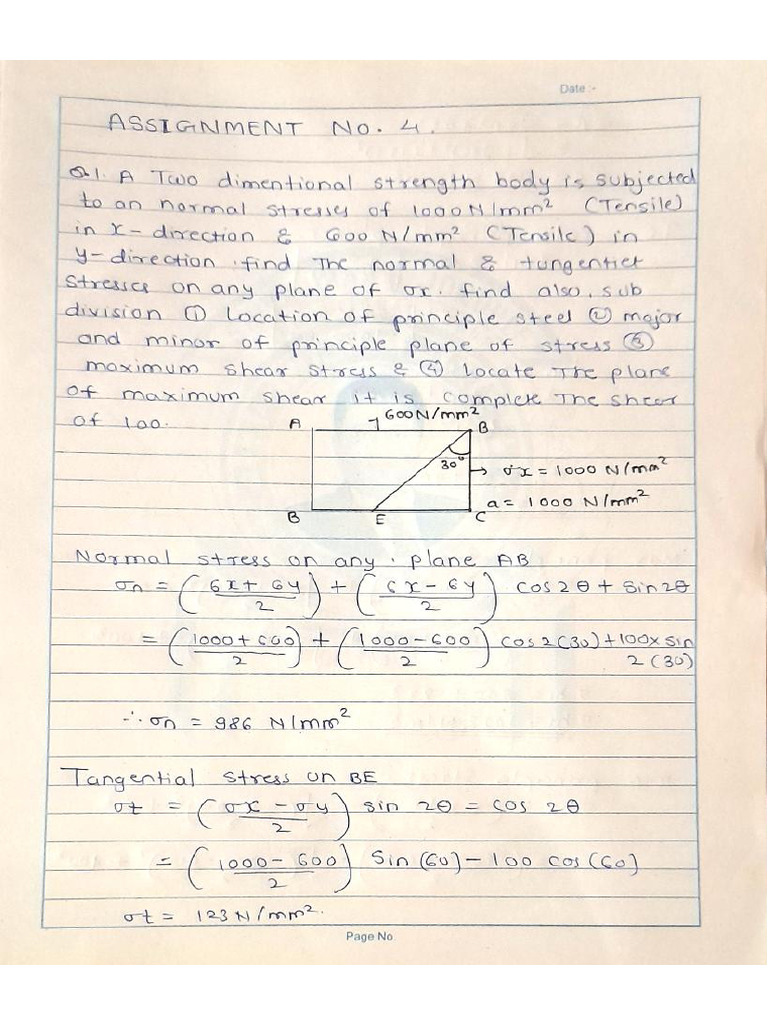 Date :-
ASSIGNMENT NO. 4.
Q.1. A Two dimentional strength body is subjected
to an normal stresses of 1000 N/mm² (Tensile)
in x-direction & 600 N/mm² (Tensile) in
y-direction. find The normal & tungentiet
stresses on any plane of σx. find also, sub
division ① Location of principle steel ② major
and minor of principle plane of stress ③
maximum shear stress & ④ Locate The plane
of maximum shear it is complete The shear
of 100.
A 600 N/mm² B
30°
→ σx = 1000 N/mm²
a = 1000 N/mm²
B E C
Normal stress on any. plane AB
σn = (6x + 6y / 2) + (6x - 6y / 2) cos 2θ + sin 2θ
= (1000 + 600 / 2) + (1000 - 600 / 2) cos 2(30) + 100 x sin
2 (30)
∴ σn = 986 N/mm²
Tangential stress on BE
σt = (σx - σy / 2) sin 2θ = cos 2θ
= (1000 - 600 / 2) sin (60) - 100 cos (60)
σt = 123 N/mm².
Page No.